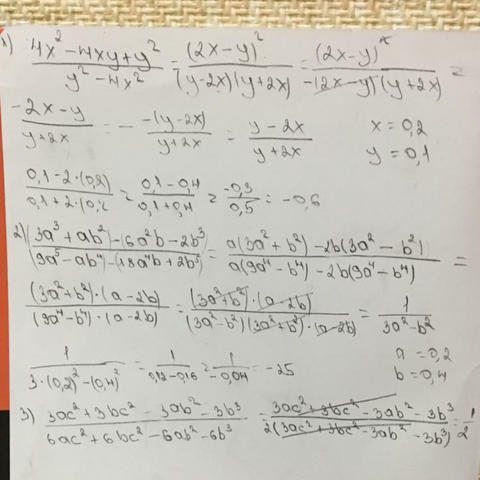 1) (4x² - 4xy + y²)/(y² - 4x²) = (2x - y)²/((y - 2x)(y + 2x)) = (2x - y)²/(-(2x - y)(y + 2x)) =
-(2x - y)/(y + 2x) = - -(y - 2x)/(y + 2x) = (y - 2x)/(y + 2x) x = 0,2
y = 0,1
(0,1 - 2·(0,2))/(0,1 + 2·(0,2) = (0,1 - 0,4)/(0,1 + 0,4) = -0,3/0,5 = -0,6
2) ((3a³ + ab²) - (6a²b - 2b³)/((9a⁵ - ab⁴) - (18a⁴b + 2b⁵) = (a(3a² + b²) - 2b(3a² - b²))/(a(9a⁴ - b⁴) - 2b(9a⁴ - b⁴)) =
((3a² + b²)·(a - 2b))/((9a⁴ - b⁴)·(a - 2b)) = ((3a² + b²)·(a - 2b))/((3a² - b²)(3a² + b²)·(a - 2b)) = 1/(3a² - b²)
1/(3·(0,2)² - (0,4)²) = 1/(0,12 - 0,16) = 1/(-0,04) = -25 a = 0,2
b = 0,4
3) (3ac² + 3bc² - 3ab² - 3b³)/(6ac² + 6bc² - 6ab² - 6b³) = (3ac² + 3bc² - 3ab² - 3b³)/(2(3ac² + 3bc² - 3ab² - 3b³)) = 1/2